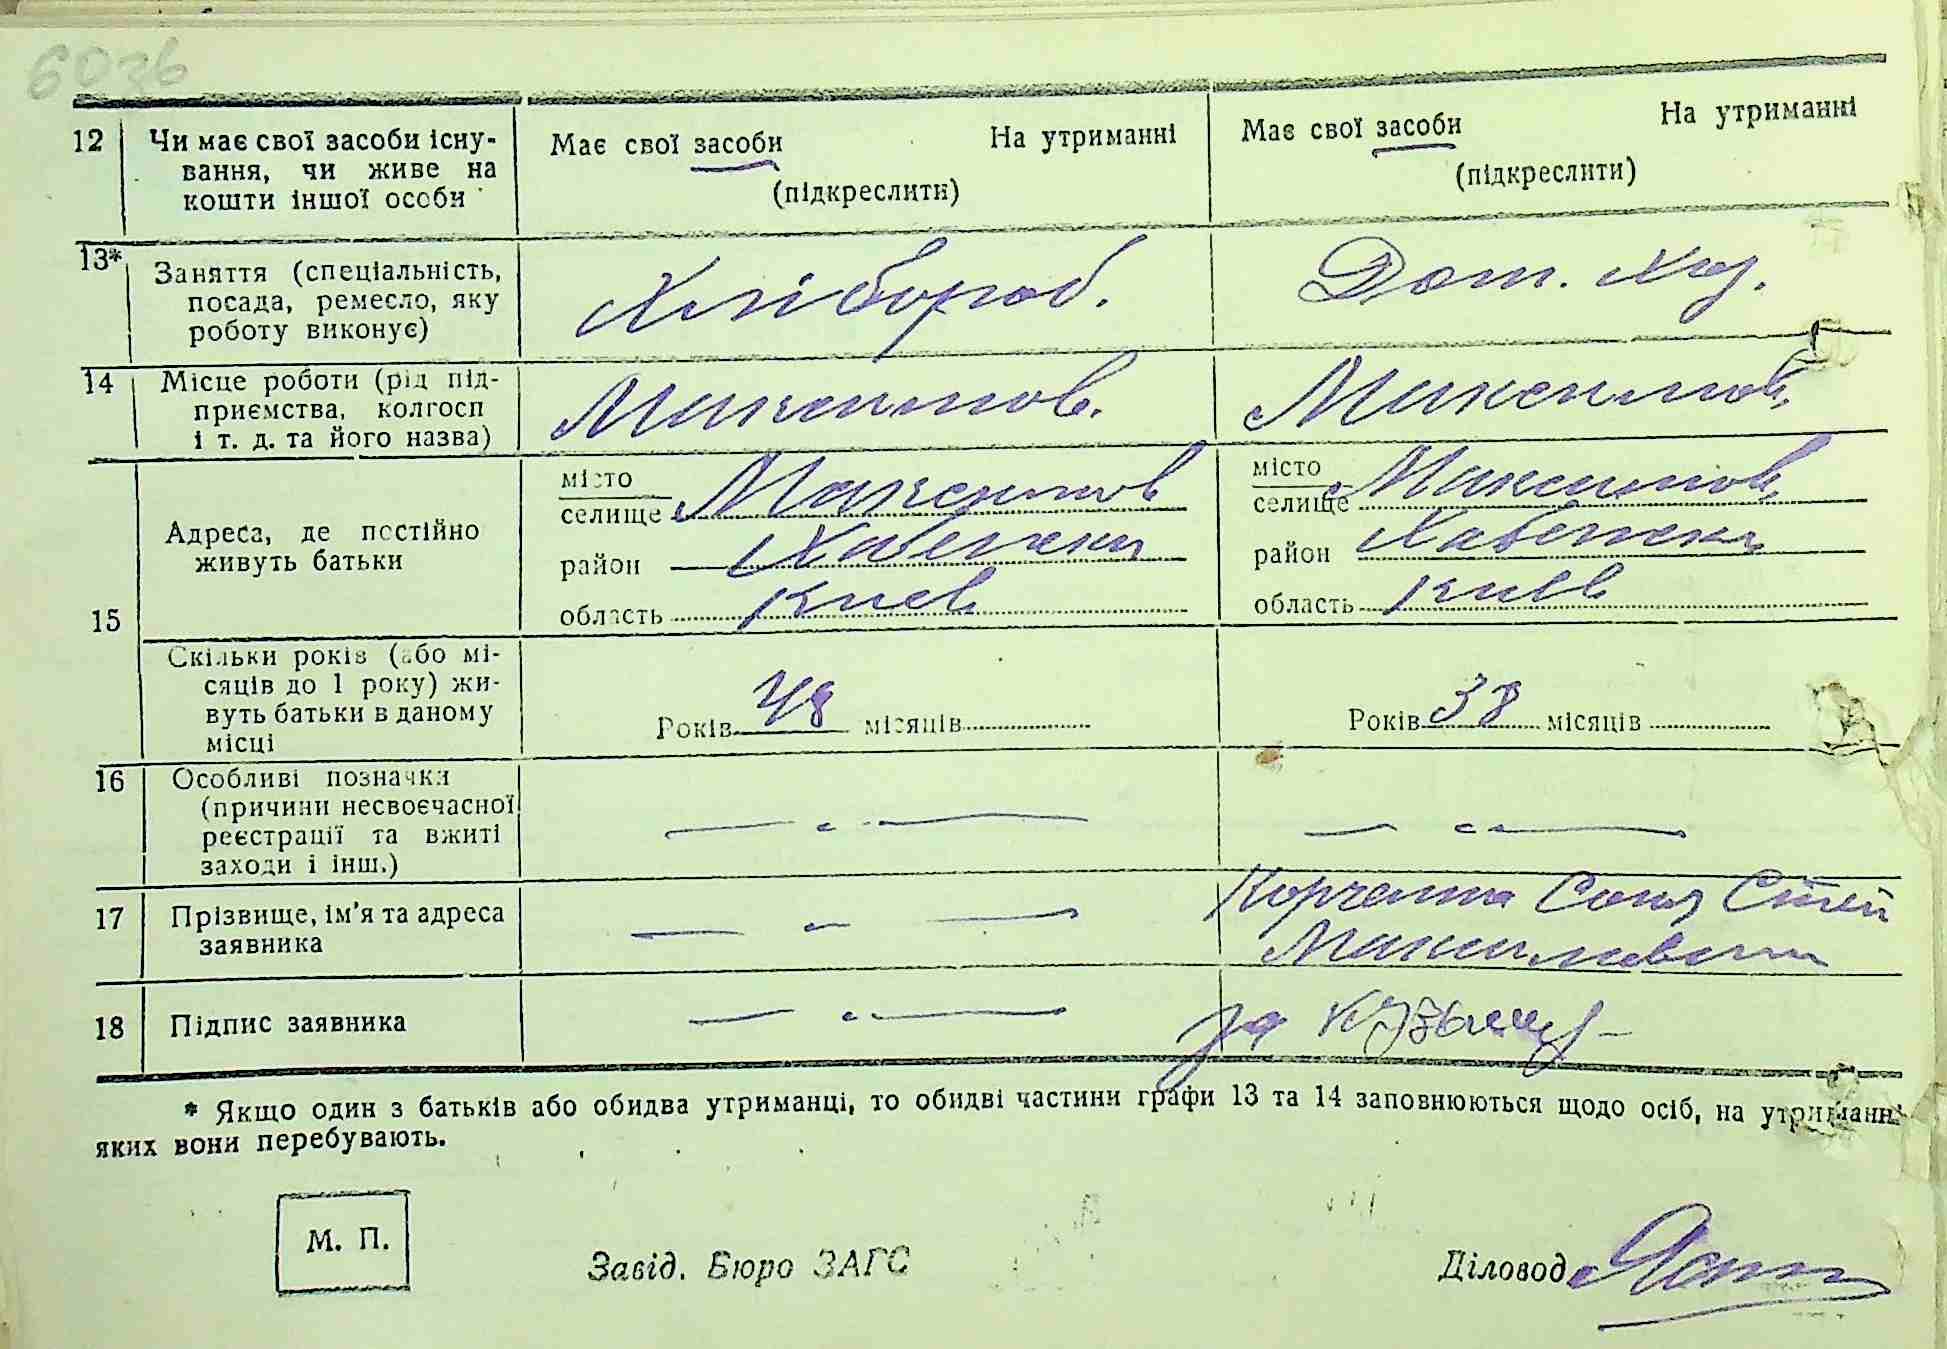 6036
12 Чи має свої засоби існу-
вання, чи живе на
кошти іншої особи
Має свої засоби На утриманні
(підкреслити)
Має свої засоби На утриманні
(підкреслити)
13* Заняття (спеціальність,
посада, ремесло, яку
роботу виконує)
Хлібороб.
Дом. Хоз.
14 Місце роботи (рід під-
приємства, колгосп
і т. д. та його назва)
Максимов.
Максимов.
15 Адреса, де постійно
живуть батьки
місто
селище Максимов
район
область Киев
місто
селище Максимов
район
область Киів
Скільки років (або мі-
сяців до 1 року) жи-
вуть батьки в даному
місці
Років 48 місяців
Років 38 місяців
16 Особливі позначки
(причини несвоєчасної
реєстрації та вжиті
заходи і інш.)
17 Прізвище, ім'я та адреса
заявника
Соня
18 Підпис заявника
за
* Якщо один з батьків або обидва утриманці, то обидві частини графи 13 та 14 заповнюються щодо осіб, на утриманні
яких вони перебувають.
М. П.
Завід. Бюро ЗАГС
Діловод